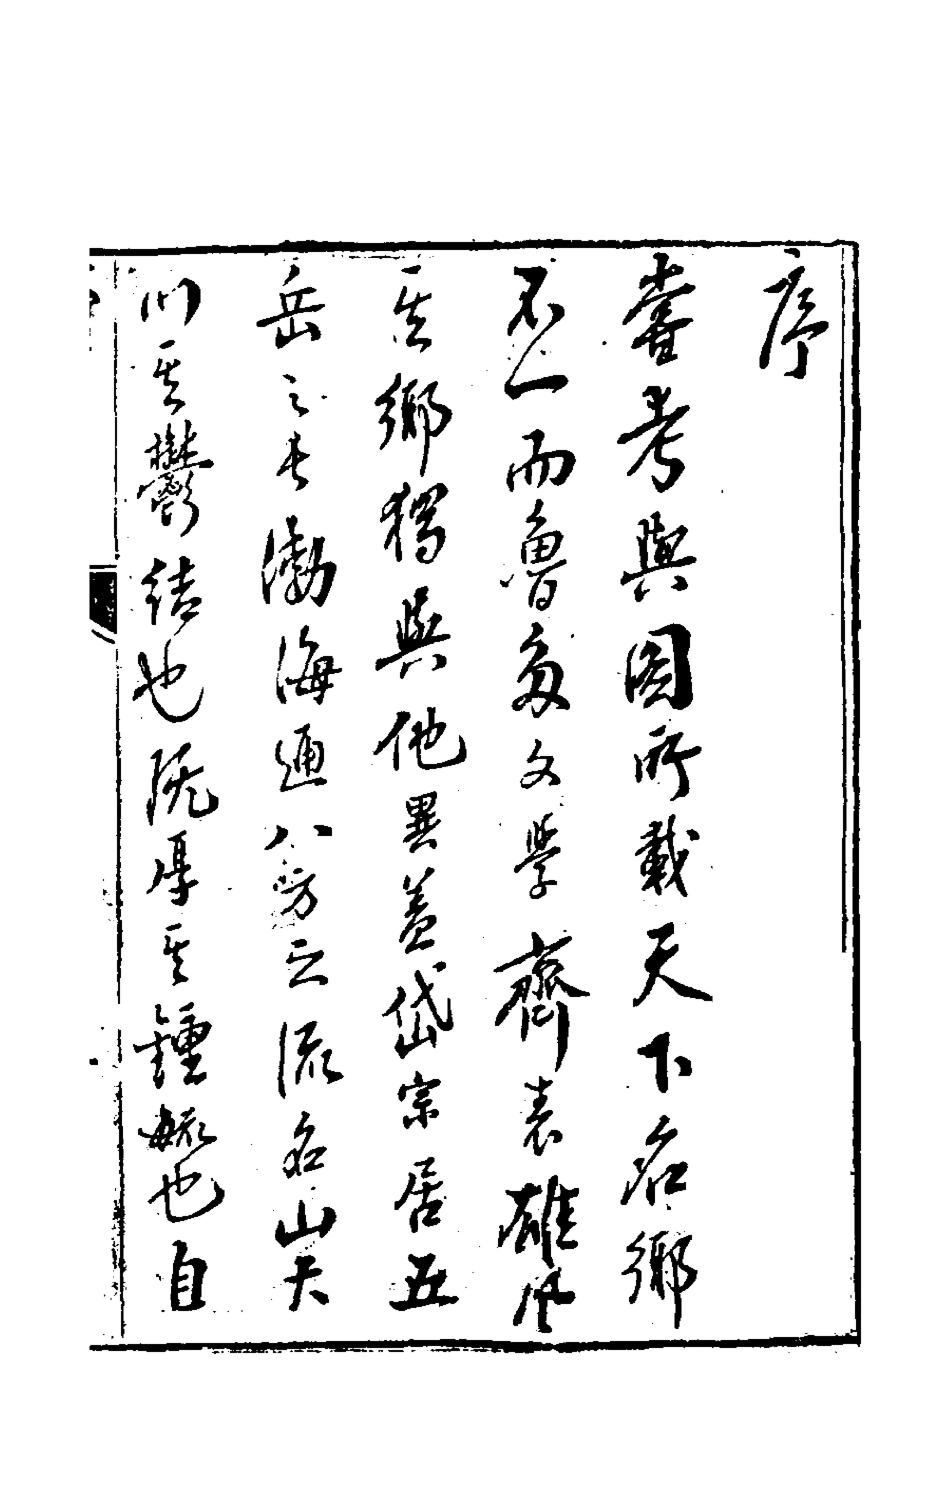 序
嘗考輿圖所載天下名鄉
不一而魯多文學齊表雄風
其鄉獨與他異蓋岱宗居五
岳之長渤海通八方之流名山大
川其鬱結也既厚其鍾毓也自